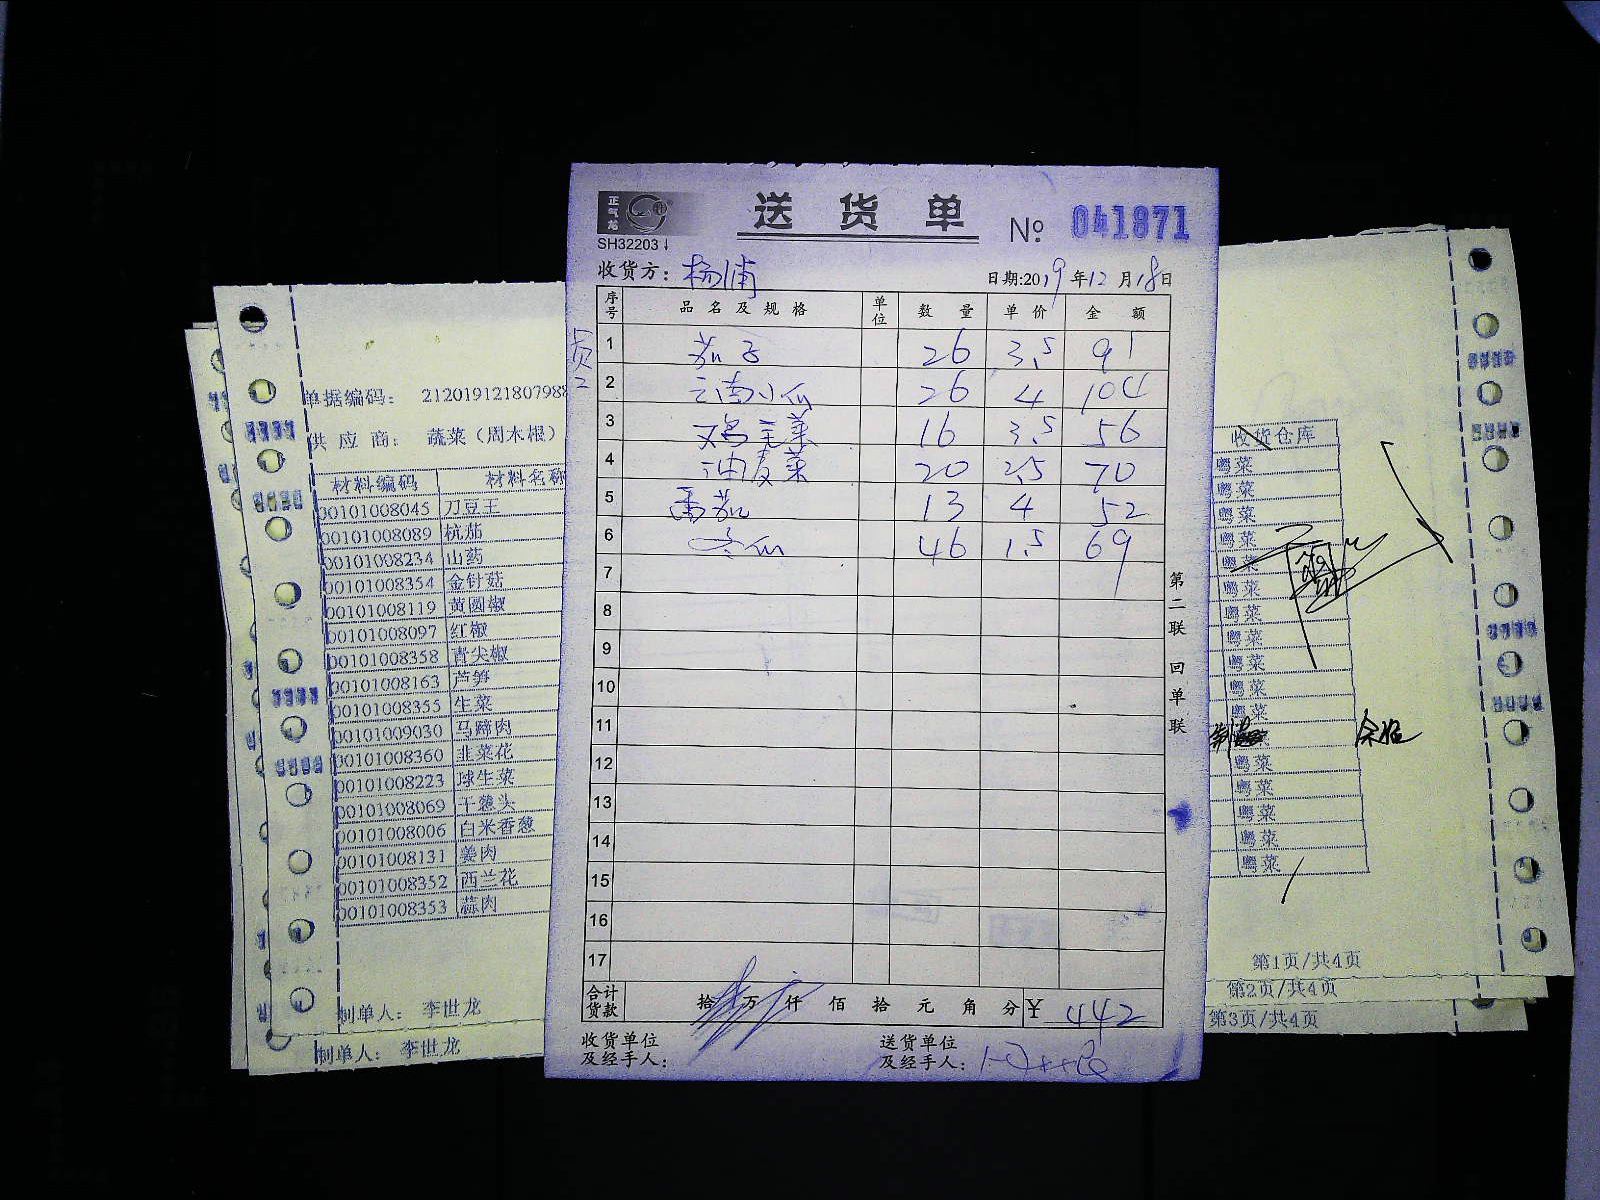 正气龙
送货单 № 041871
SH32203
收货方：杨浦 日期:2019年12月18日
序号 品名及规格 单位 数量 单价 金额
员工
1 茄子 26 3.5 91
2 云南小瓜 26 4 104
3 鸡毛菜 16 3.5 56
4 油麦菜 20 2.5 70
5 番茄 13 4 52
6 冬瓜 46 1.5 69
7
8
9
10
11
12
13
14
15
16
17
合计货款 拾万仟佰拾元角分 ¥ 442
收货单位及经手人：
送货单位及经手人：
第二联 回单联
单据编码： 212019121807988
供应商： 蔬菜（周木根）
材料编码 材料名称
00101008045 刀豆王
00101008089 杭茄
00101008234 山药
00101008354 金针菇
00101008119 黄圆椒
00101008097 红椒
00101008358 青尖椒
00101008163 芦笋
00101008355 生菜
00101009030 马蹄肉
00101008360 韭菜花
00101008223 球生菜
00101008069 干葱头
00101008006 白米香葱
00101008131 姜肉
00101008352 西兰花
00101008353 蒜肉
制单人： 李世龙
制单人： 李世龙
收货仓库
粤菜
粤菜
粤菜
粤菜
粤菜
粤菜
粤菜
粤菜
粤菜
粤菜
粤菜
粤菜
粤菜
粤菜
粤菜
粤菜
第1页/共4页
第2页/共4页
第3页/共4页